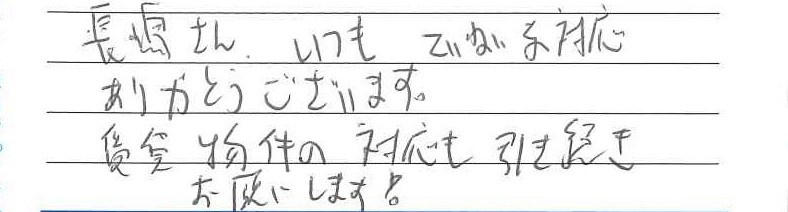 長嶋さん、いつも ていねいな対応
ありがとうございます。
賃貸 物件の 対応も 引き続き
お願いします!